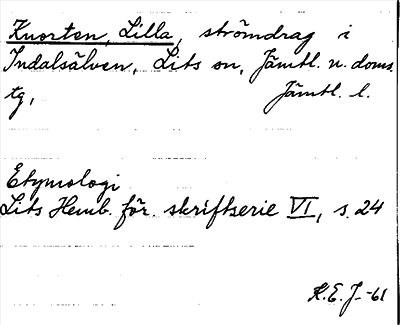 Knorten, Lilla, strömdrag i
Indalsälven, Lits sn, Jämtl. n. doms.
tg, Jämtl. l.
Etymologi
Lits Hemb. för. skriftserie VI, s. 24
K.E.J.-61